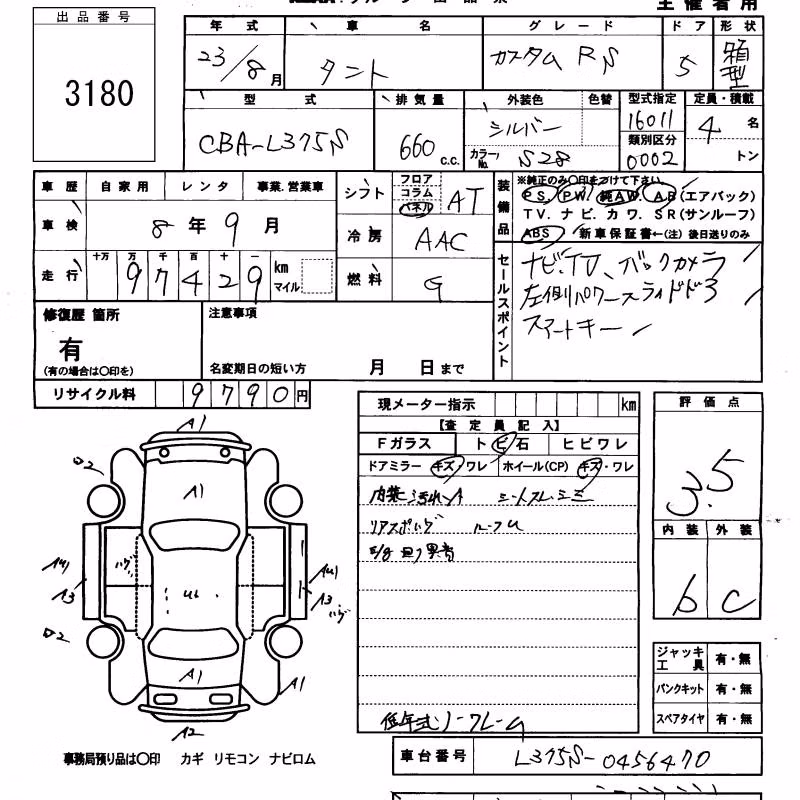 主催者用
出品番号
3180
年式 車名 グレード ドア 形状
23/8月 タント カスタムRS 5 箱型
型式 排気量 外装色 色替 型式指定 定員・積載
CBA-L375S 660 c.c. シルバー 16011 4名
カラーNo. S28 類別区分 0002 トン
車歴 自家用 レンタ 事業.営業車
車検 8年9月
走行 十万 万 千 百 十 一
97429 km マイル
シフト フロア コラム パネル AT
冷房 AAC
燃料 G
装備品 ※純正のみ〇印をつけて下さい。
PS. PW. 純AW. A.B(エアバック)
TV. ナビ. カワ. SR(サンルーフ)
ABS 新車保証書←(注)後日送りのみ
セールスポイント
ナビ、TV、バックカメラ
左側パワースライドドア
スマートキー
修復歴 箇所
有
(有の場合は〇印を)
注意事項
名変期日の短い方 月 日まで
リサイクル料 9790円
現メーター指示 km
【査定員記入】
Fガラス トビ石 ヒビワレ
ドアミラー キズ・ワレ ホイール(CP) キズ・ワレ
内装 汚れ シートスレ
評価点
3.5
内装 外装
b C
A1
A1
A1
A1
A2
A3
A3
U6
ジャッキ工具 有・無
パンクキット 有・無
スペアタイヤ 有・無
事務局預り品は〇印 カギ リモコン ナビロム
車台番号 L375S-0456470